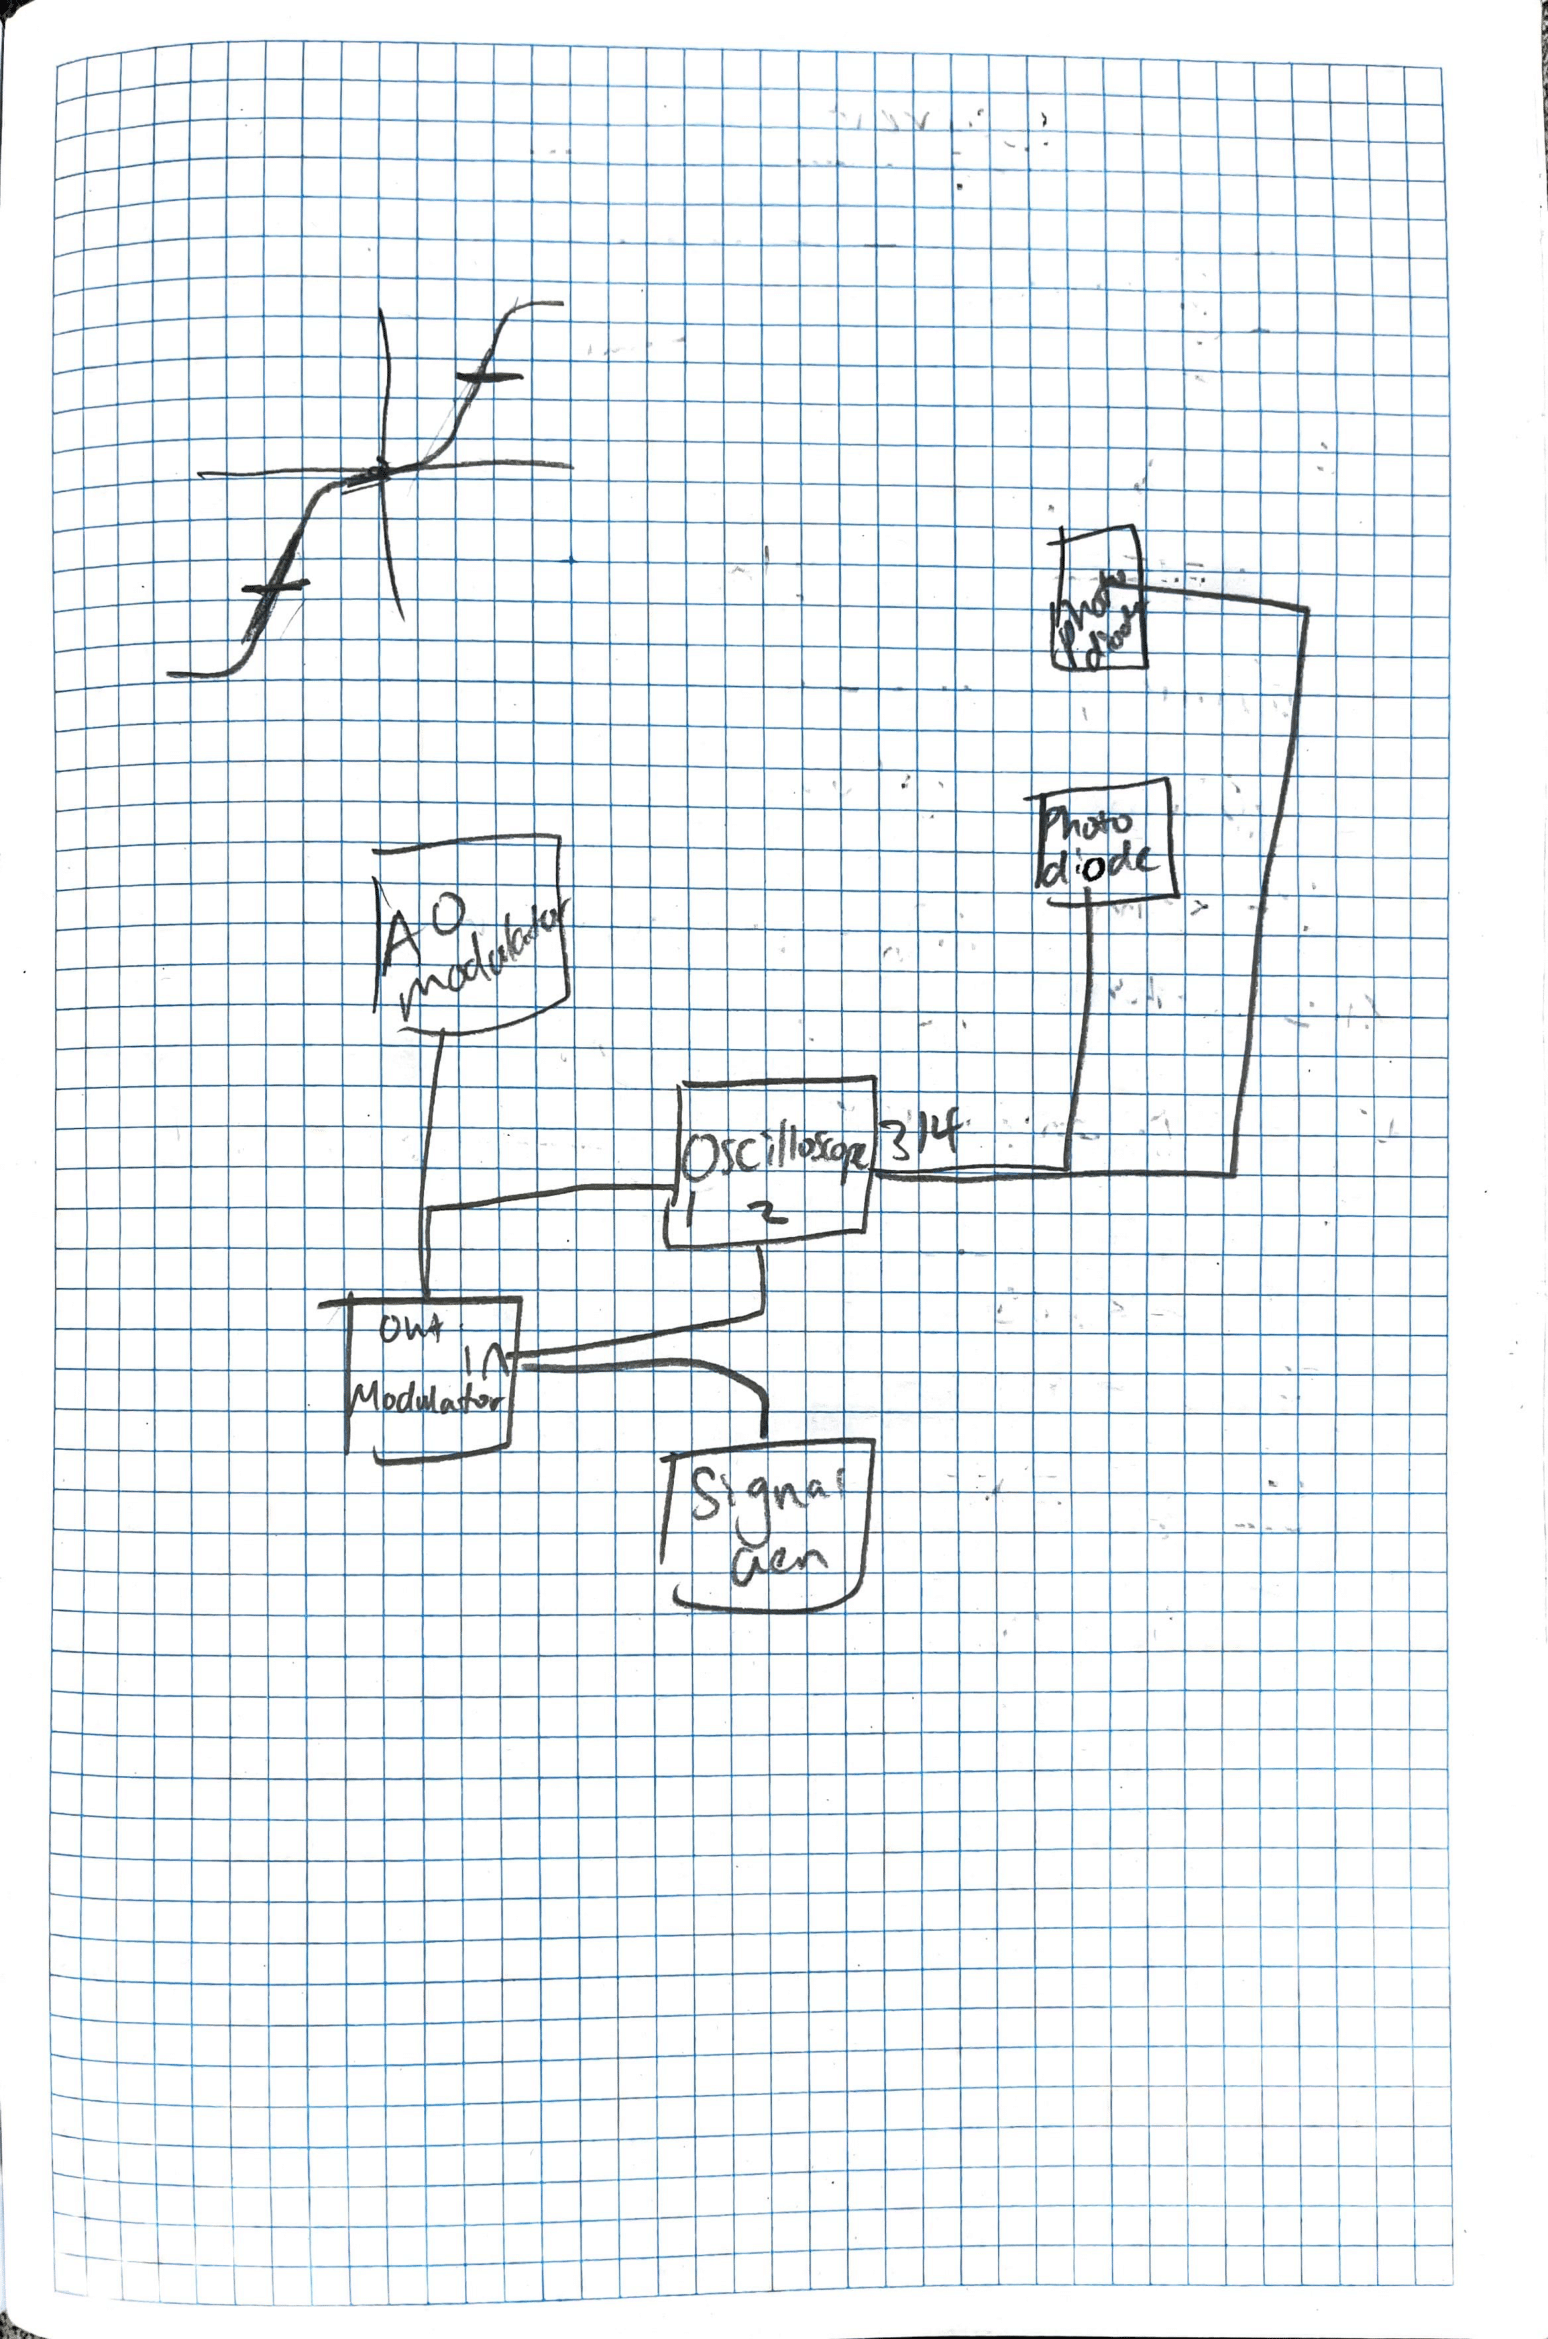 Photo
diode
Photo
diode
AO
modulator
Oscilloscope
3/4
1 2
out
in
Modulator
Signal
Gen